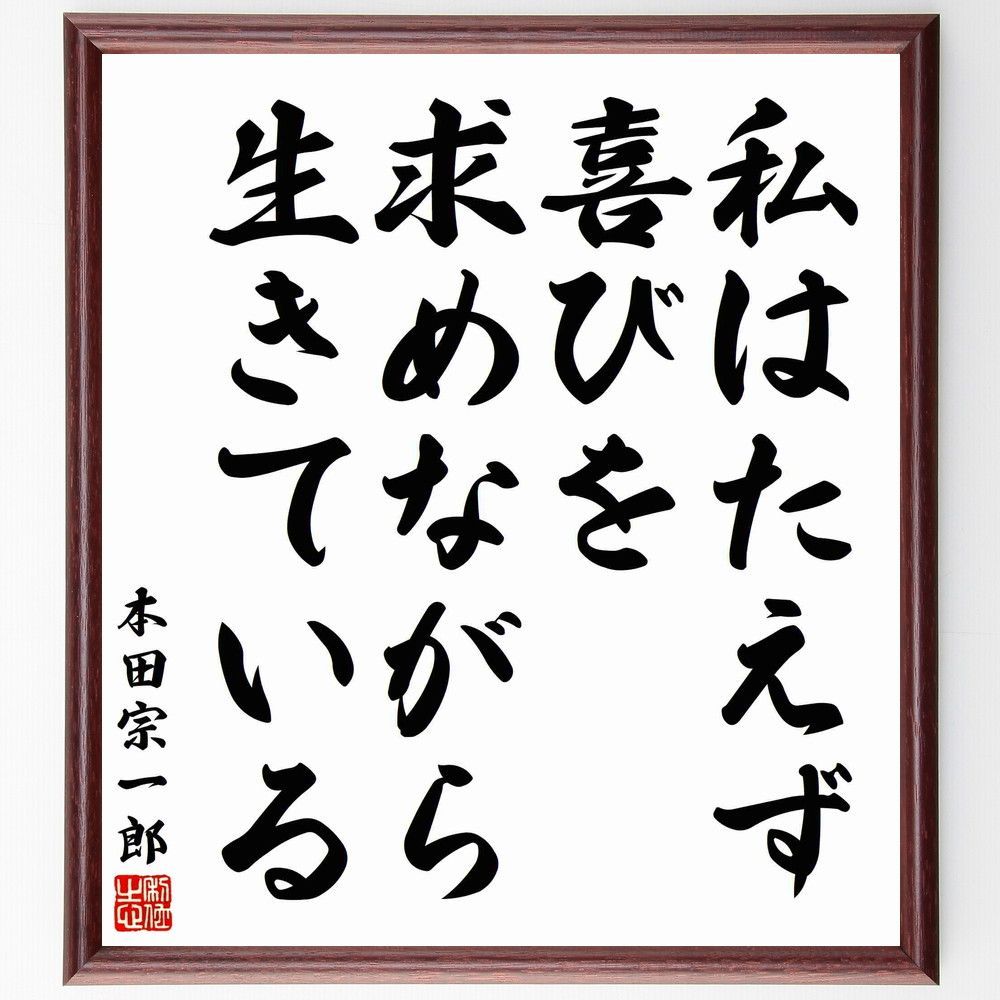 私はたえず
喜びを
求めながら
生きている
本田宗一郎